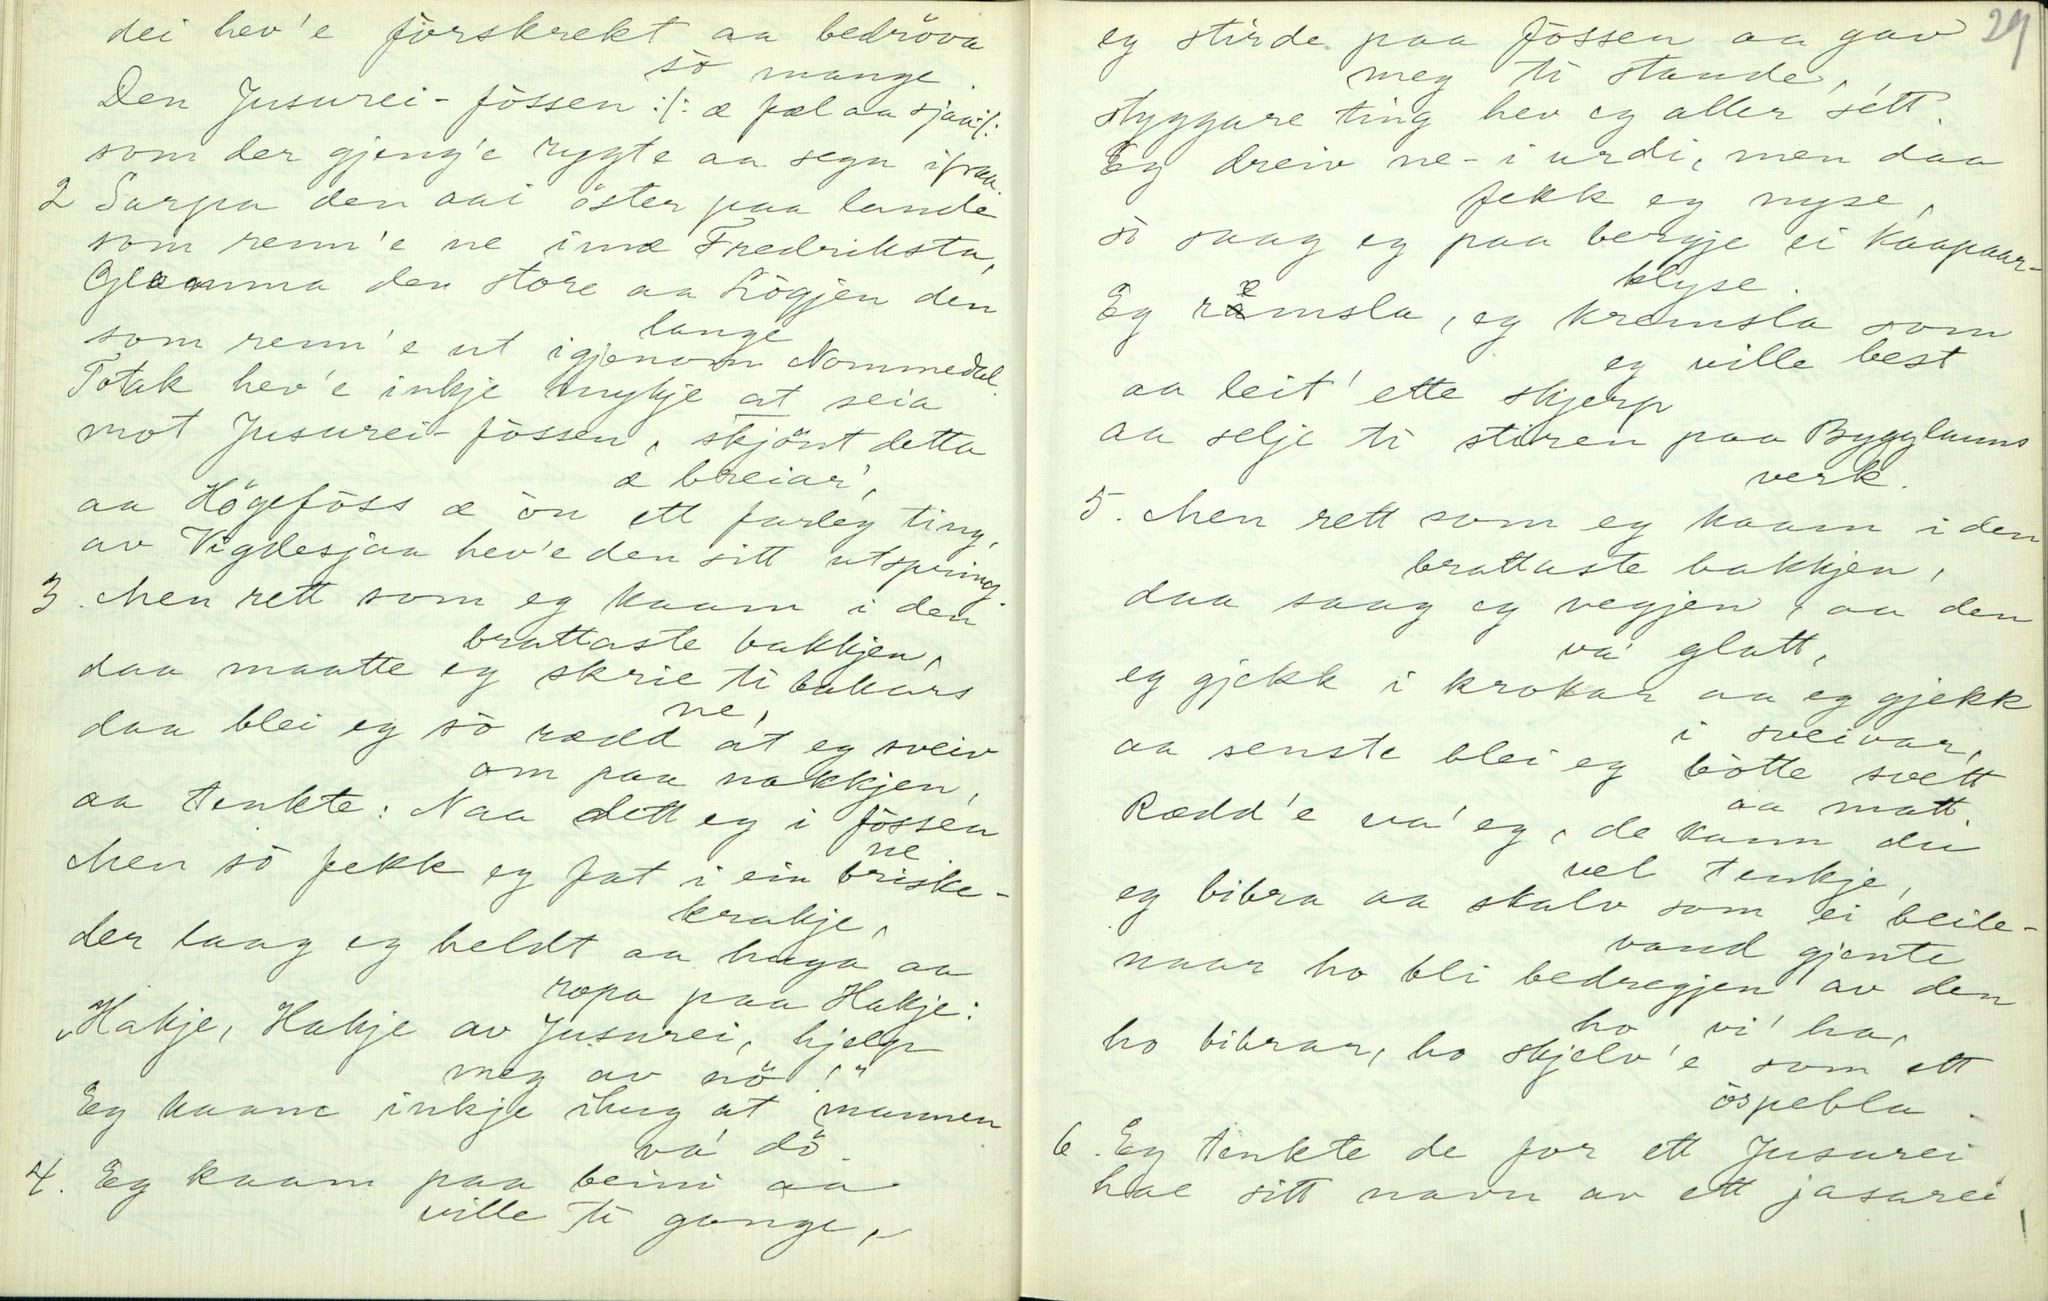 dei hev'e forskrekt aa bedröva
sò mange.
Den Jusurei-fòssen :/: æ fæl aa sjaa :/:
som der gjeng'e rygte aa segn ifraa.
2 Sarpa den aai öster paa lande
som renn'e ne inne Fredriksta,
Glaamma den store aa Lògjen den
lange
som renn'e ut igjenom Nommedal.
Totak hev'e inkje mykje at seia
mot Jusurei-fòssen, skjönt detta
æ breiar',
aa Högefòss æ òn ett farleg ting,
av Vigdesjaa hev'e den sitt utspring.
3. Men rett som eg kaam i den
brattaste bakkjen,
daa maatte eg skrie ti bakars
ne,
daa blei eg sò rædd at eg sveiv
om paa nakkjen,
aa tenkte: Naa dett eg i fòssen
ne
Men sò fekk eg fat i ein briske-
krakje,
der laag eg heldt aa huga aa
ropa paa Hakje:
"Hakje, Hakje av Jusurei, hjelp
meg av nö!"
Eg kaam inkje ihug at mannen
va' dö.
4. Eg kaam paa beini aa
ville ti gange,
29
eg stirde paa fòssen aa gav
meg ti stande,
styggare ting hev eg aller sétt.
Eg dreiv ne-i urdi, men daa
fekk eg nyse,
sò saag eg paa bergje ei kaapaar-
klyse.
Eg remsla, eg kremsla som
eg ville best
aa leit' ette skjerp
aa selje ti stiren paa Bygglanns
verk.
5. Men rett som eg kaam i den
brattaste bakkjen,
daa saag eg vegjen, aa den
va' glatt,
eg gjekk i krokar aa eg gjekk
i sveivar,
aa senste blei eg bòtte svett
aa matt.
Rædd'e va' eg, de kann du
vel tenkje,
eg bibra aa skalv som ei beile-
vand gjente
naar ho bli bedregjen av den
ho vi' ha,
ho bibrar, ho skjelv'e som ett
òspebla.
6. Eg tenkte de for ett Jusurei
hae sitt navn av ett jasarei